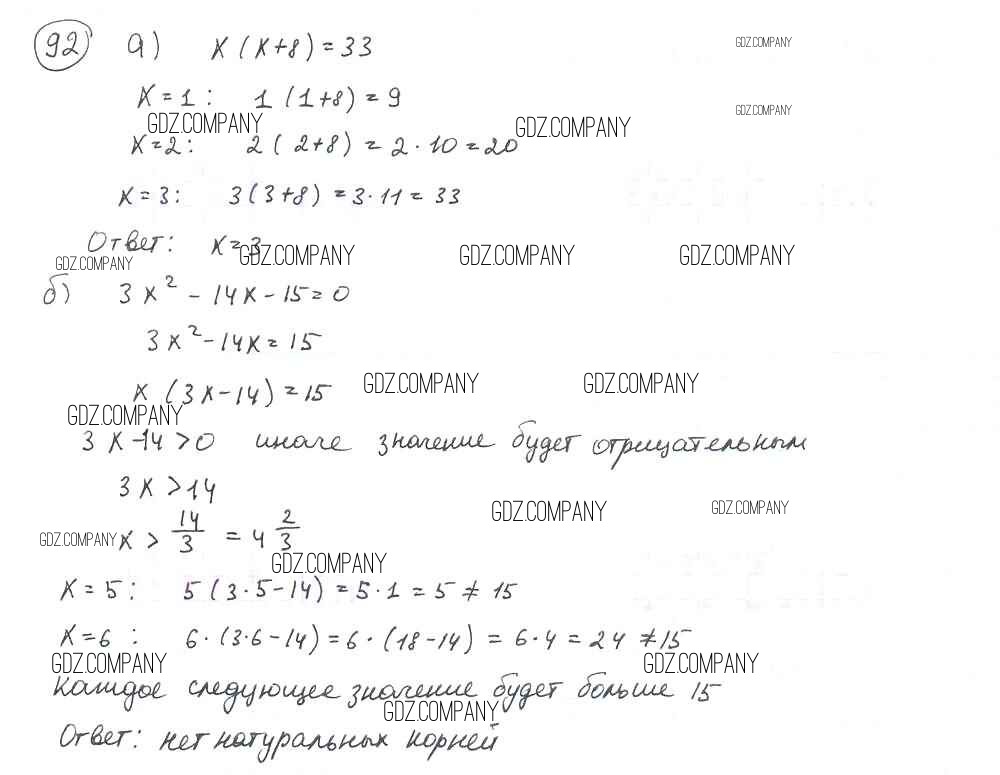 92 а) x(x+8)=33
GDZ.COMPANY
x=1: 1(1+8)=9
GDZ.COMPANY
GDZ.COMPANY GDZ.COMPANY
x=2: 2(2+8)=2·10=20
x=3: 3(3+8)=3·11=33
Ответ: x=3
GDZ.COMPANY GDZ.COMPANY GDZ.COMPANY
GDZ.COMPANY
б) 3x²-14x-15=0
3x²-14x=15
x(3x-14)=15
GDZ.COMPANY GDZ.COMPANY
GDZ.COMPANY
3x-14>0 иначе значение будет отрицательным
3x>14
GDZ.COMPANY GDZ.COMPANY
x > 14/3 = 4 2/3
GDZ.COMPANY
GDZ.COMPANY
x=5: 5(3·5-14)=5·1=5≠15
x=6: 6·(3·6-14)=6·(18-14)=6·4=24≠15
GDZ.COMPANY GDZ.COMPANY
Каждое следующее значение будет больше 15
GDZ.COMPANY
Ответ: нет натуральных корней